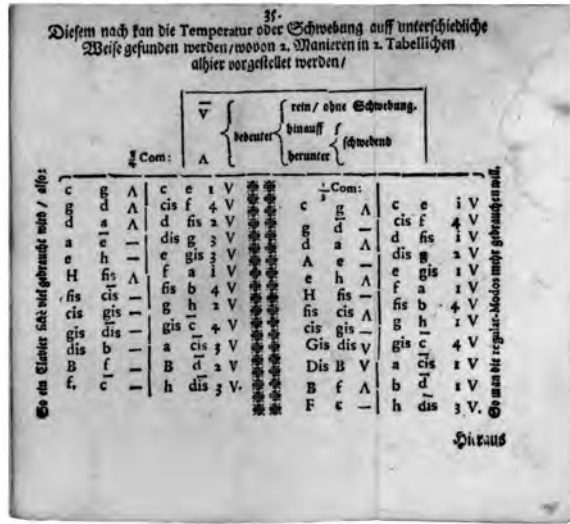 35.
Diesem nach kan die Temperatur oder Schwebung auff unterschiedliche
Weise gefunden werden/wovon 2. Manieren in 2. Tabellichen
alhier vorgestellet werden/
V̄ bedeutet rein/ ohne Schwebung.
hinauff
Λ berunter schwebend
So ein Clavier ficte viel gebraucht wird / also:
¼ Com:
c g Λ c e 1 V
g d̄ Λ cis f 4 V
d a Λ d fis 2 V
a ē — dis g 3 V
e h — e gis 3 V
H fis Λ f a i V
fis cis̄ — fis b 4 V
cis gis — g h 2 V
gis dis̄ — gis c̄ 4 V
dis b — a cis̄ 3 V
B f — B d̄ 2 V
f. c̄ — h dis̄ 3 V.
⅓ Com:
c g Λ c e i V
g d̄ — cis f 4 V
d a Λ d fis i V
A e — dis 2 V
e h Λ e gis 1 V
H fis — f a 1 V
fis cis Λ fis b 4 V
cis gis — g h 1 V
Gis dis V gis c̄ 4 V
Dis B V a cis̄ 1 V
B f Λ b d̄ 1 V
F c — h dis̄ 3 V.
So man die regular-Modos mehr gebrauchen will.
Hieraus